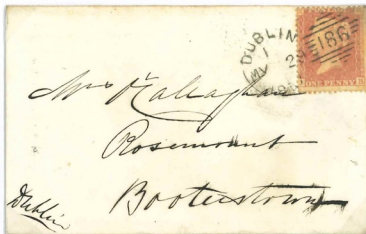 DUBLIN
186
ONE PENNY
Mrs O'Callaghan
Rosemount
Booterstown
Dublin